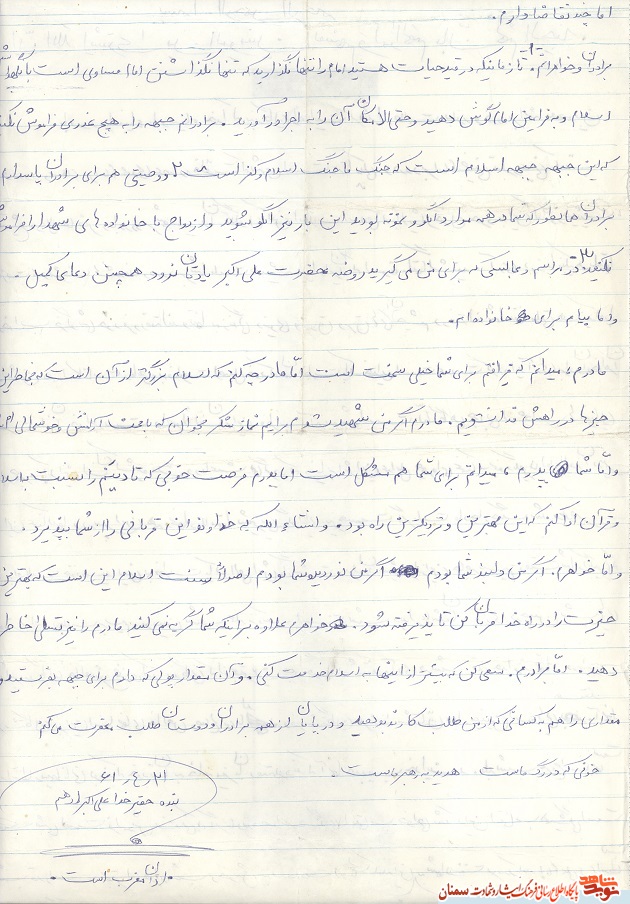 اما چند تقاضا دارم.
برادران و خواهرانم ۱- تا زمانیکه در قید حیات هستید امام را تنها نگذارید که تنها نگذاشتن امام مساوی است با
اسلام و به فرامین امام گوش دهید و حتی الامکان آن را به اجرا درآورید. برادرانم جبهه را به هیچ عذری فراموش نکنید
که این جبهه جبهه اسلام است که جنگ ما جنگ اسلام و کفر است ۲- و وصیتی هم برای برادران پاسدارم
برادران همانطور که شما در همه موارد الگو و نمونه بودید این بار نیز الگو شوید و ازدواج با خانواده های شهدا را فراموش
نکنید. ۳- در مراسم و مجالسی که برای من می گیرید روضه حضرت علی اکبر یادتان نرود همچنین دعای کمیل.
و اما پیام برای خانواده ام.
مادرم، میدانم که فراقم برای شما خیلی سخت است اما مادر چه کنم که اسلام بزرگتر از آن است که بخاطر این
چیزها در راهش قدم نشویم. مادرم اگر من شهید شدم برایم نماز شکر بخوان که باعث آرامش و خوشحالی
و اما شما پدرم، میدانم برای شما هم مشکل است اما پدرم فرصت خوبی که تا دینم را نسبت به اسلام
و قرآن ادا کنم که این بهترین و نزدیکترین راه بود. و انشاء الله که خداوند این قربانی را از شما بپذیرد.
و اما خواهرم. اگر من دلبند شما بودم اگر من نور دیده شما بودم اصولاً سنت اسلام این است که بهترین
چیزت را در راه خدا قربان کن تا پذیرفته شود. خواهرم علاوه بر اینکه شما گریه نمی کنید مادرم را نیز تسلی خاطر
دهید. اما برادرم. سعی کن که بیشتر از اینها به اسلام خدمت کنی. و آن مقدار پولی که دارم برای جبهه بفرستید و
مقداری را هم به کسانی که از من طلب کارند بدهید و در پایان از همه برادران و دوستان طلب مغفرت می کنم
خونی که در رگ ماست هدیه به رهبر ماست.
۲۱ر۴ر۶۱
بنده حقیر خدا علی اکبر ادهم
اذان مغرب است.
شاهد
نوید
پایگاه اطلاع رسانی فرهنگ ایثار و شهادت سمنان